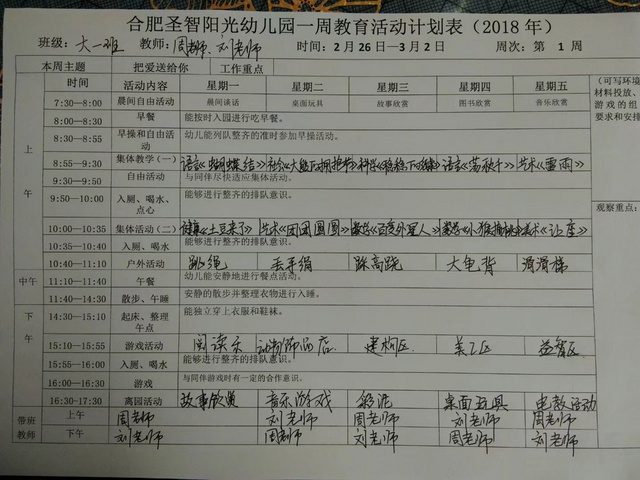 合肥圣智阳光幼儿园一周教育活动计划表（2018 年）
班级：大一班 教师：周老师、刘老师 时间：2 月 26 日—3 月 2 日 周次：第 1 周
本周主题 把爱送给你 工作重点
时间 活动内容 星期一 星期二 星期三 星期四 星期五
（可写环境
材料投放、
游戏的组
要求和安排
上午
7:30—8:00 晨间自由活动 晨间谈话 桌面玩具 故事欣赏 图书欣赏 音乐欣赏
8:00—8:30 早餐 能按时入园进行吃早餐。
8:30—8:55 早操和自由活动 幼儿能列队整齐的准时参加早操活动。
8:55—9:30 集体教学（一） 语言《蝴蝶结》 科学 语言《荡秋千》 艺术《雷雨》
9:30—9:50 自由活动 与同伴尽快适应集体活动。
9:50—10:00 入厕、喝水、点心 能够进行整齐的排队意识。
观察重点：
10:00—10:35 集体活动（二） 健康《土豆来了》 艺术《团团圆圆》 《百变外星人》 美术《让座》
10:35—10:40 入厕、喝水 能够进行整齐的排队意识。
10:40—11:10 户外活动 跳绳 丢手绢 踩高跷 大龟背 滑滑梯
中午
11:10—11:40 午餐 幼儿能安静地进行餐点活动。
11:40—14:30 散步、午睡 安静的散步并整理衣物进行入睡。
下午
14:30—15:10 起床、整理午点 能独立穿上衣服和鞋袜。
15:10—15:55 游戏活动 阅读乐 动物饰品店 建构区 美工区 益智区
15:55—16:00 入厕、喝水 能够进行整齐的排队意识。
16:00—16:30 游戏 与同伴游戏时有一定的合作意识。
16:30-17:30 离园活动 故事欣赏 音乐游戏 彩泥 桌面玩具 电教活动
带班教师
上午 周老师 刘老师 周老师 刘老师 周老师
下午 刘老师 周老师 刘老师 周老师 刘老师